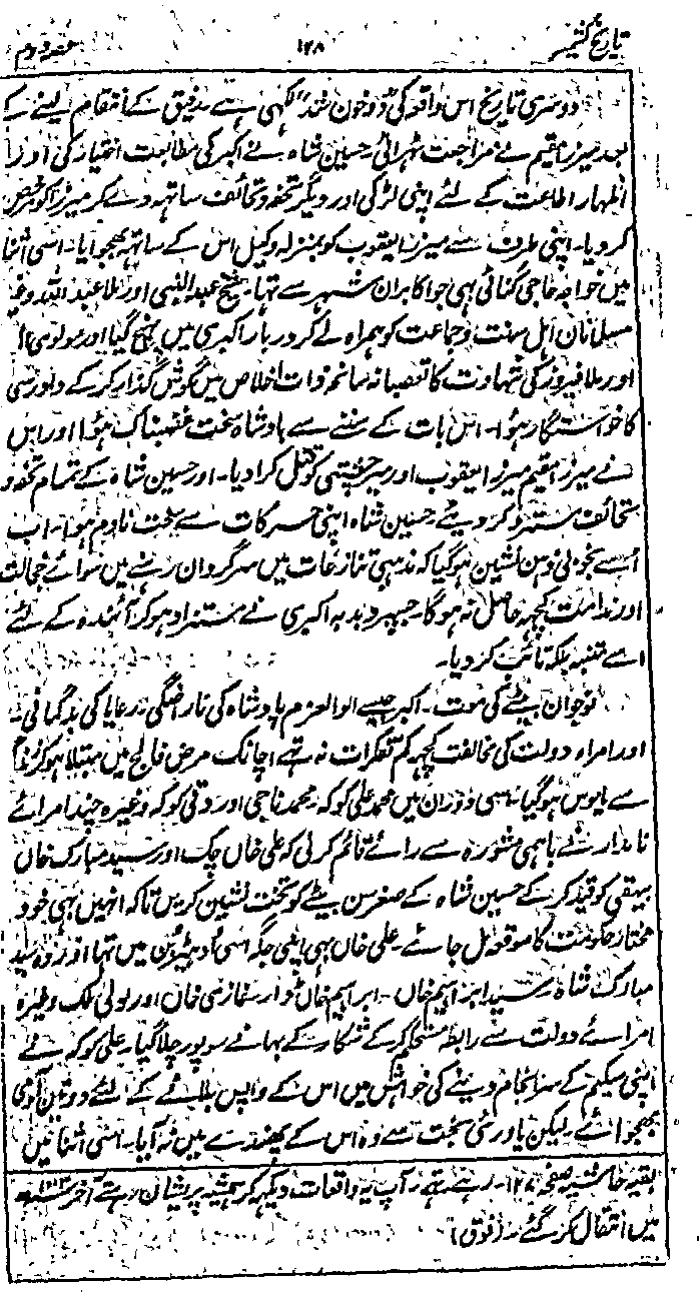 تاریخ کشمیر ۱۲۸ حصہ دوم
دوسری تاریخ اس واقعہ کی "دو خون شد" لکھی ہے۔ بدیق کے انتقام لینے کے
بعد میرزا مقیم نے مراجعت ٹہرائی۔ حسین شاہ نے اکبر کی متابعت اختیار کی اور
اظہار اطاعت کے لئے اپنی لڑکی اور دیگر تحفہ و تحائف ساتھ دے کر میرزا کو مرخص
کر دیا۔ اپنی طرف سے میرزا یعقوب کو بمنزلہ وکیل اس کے ساتھ بھجوایا۔ اسی اثنا
میں خواجہ حاجی گنائی بھی جو اکابران شہر سے تہا۔ شیخ عبدالنبی اور ملا عبداللہ وغیر
مسلمانان اہل سنت و جماعت کو ہمراہ لے کر دربار اکبری میں پہنچ گیا اور مولوی
اور ملا فیروز کی شہادت کا تعصبانہ سانحہ ذات اخلاص میں گوش گذار کر کے داورسی
کا خواستگار ہوا۔ اس بات کے سننے سے بادشاہ سخت غضبناک ہوا اور اس
نے میرزا مقیم میرزا یعقوب اور میر حبشی کو قتل کرا دیا۔ اور حسین شاہ کے تمام تحفہ و
تحائف مسترد کر دیئے۔ حسین شاہ اپنی حرکات سے سخت نادم ہوا۔ اب
اسے بخوبی ذہن نشین ہو گیا کہ مذہبی تنازعات میں سرگردان رہنے میں سوائے خجالت
اور ندامت کچھ حاصل نہ ہو گا۔ جسپر دبدبہ اکبری نے مستزاد ہو کر آئندہ کے لئے
اسے متنبہ بلکہ تائب کر دیا۔
نوجوان بیٹے کی موت۔ اکبر جیسے اولوالعزم بادشاہ کی ناراضگی۔ رعایا کی بدگمانی۔
اور امراء دولت کی مخالفت کچھ کم تفکرات نہ تہے اچانک مرض فالج میں مبتلا ہو کر زندگا
سے مایوس ہو گیا۔ اسی دوران میں محمد علی کوکہ۔ محمد ناجی اور دتی کوکہ وغیرہ چند امرائے
نامدار نے باہمی مشورہ سے رائے قائم کر لی کہ علی خاں چک اور سید مبارک خاں
بیہقی کو قید کر کے حسین شاہ کے صغر سن بیٹے کو تخت نشین کریں تاکہ انہیں بھی خود
مختار حکومت کا موقعہ مل جائے۔ علی خاں بھی اپنی جگہ اسی ادھیڑبن میں تہا اور وہ سید
مبارک شاہ۔ سید ابراہیم خاں۔ ابراہیم خاں ڈوار۔ غازی خان اور لولی لک وغیرہ
امرائے دولت سے رابطہ مستحکم کر کے شکار کے بہانے سوپور چلا گیا۔ علی کوکہ نے
اپنی سکیم کے سرانجام دینے کی خواہش میں اس کے واپس بلانے کے لئے دو تین آدمی
بھجوائے۔ لیکن یاوری بخت سے وہ اس کے پھندے میں نہ آیا۔ اسی اثنا میں
بقیہ حاشیہ صفحہ ۱۲۷۔ رہے تہے۔ آپ یہ واقعات دیکہہ کر ہمیشہ پریشان رہتے آخر
میں انتقال کر گئے۔ (فوق)